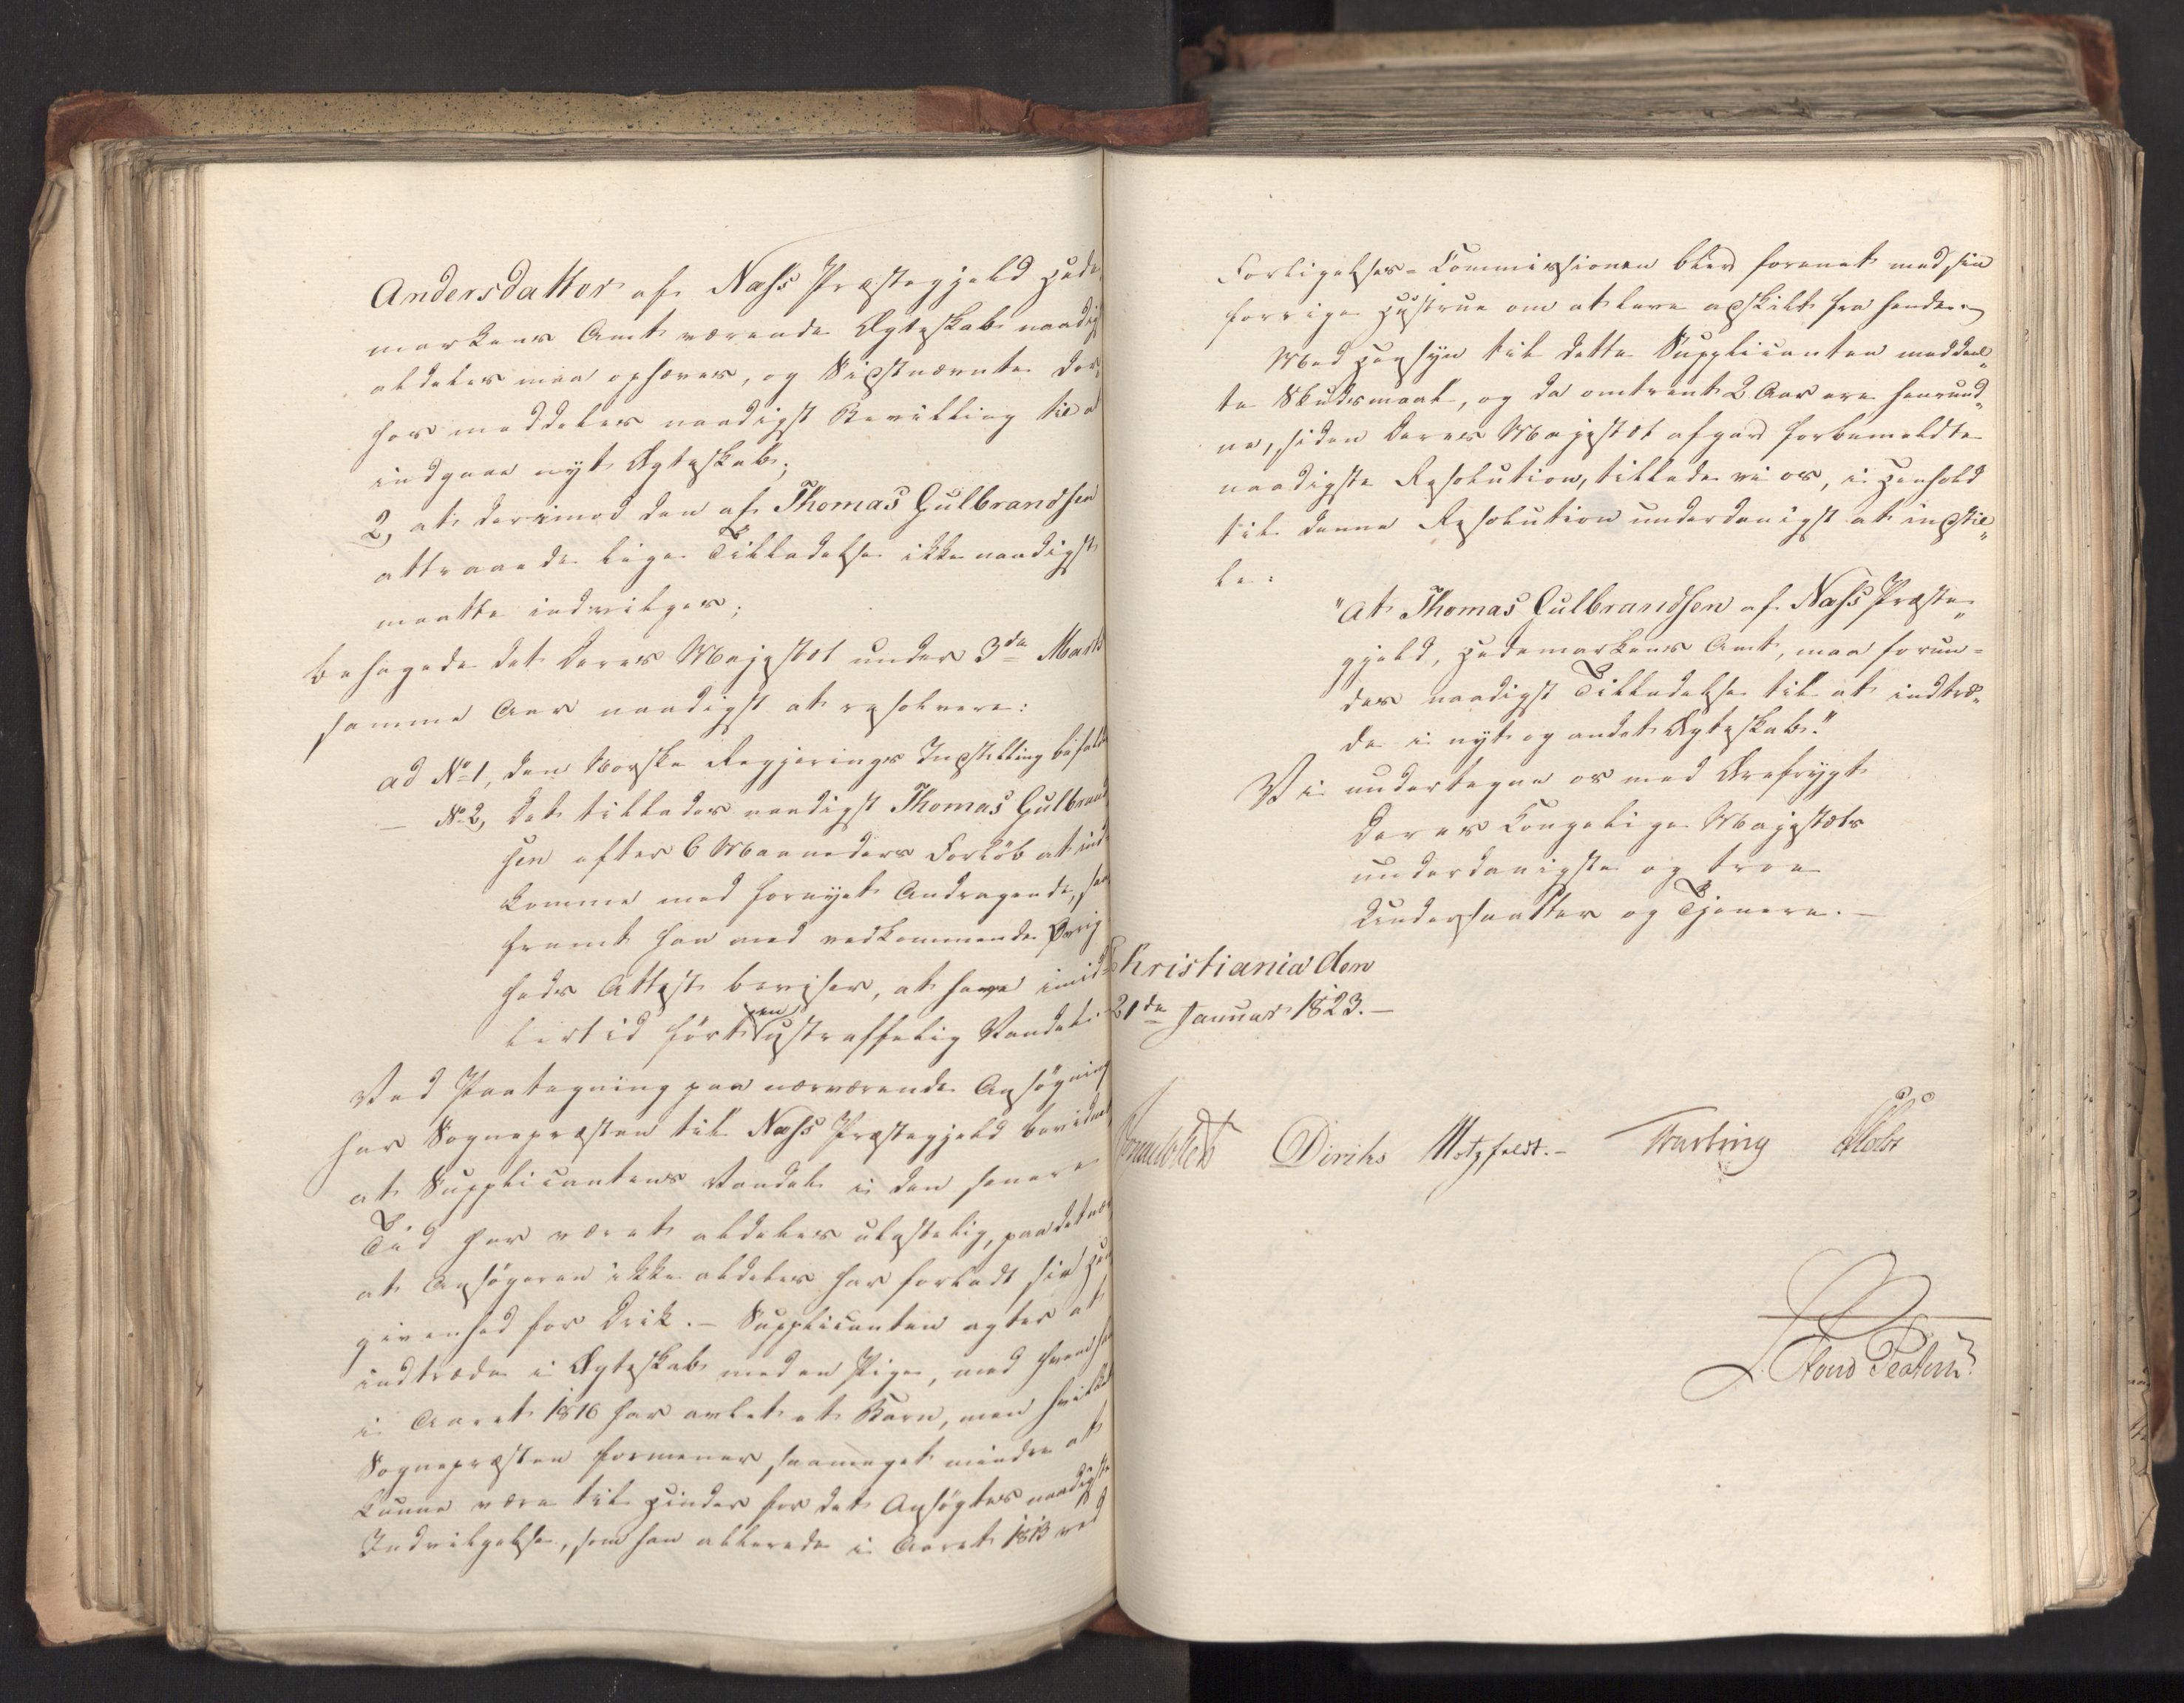 Andersdatter af Næss Præstegjeld Hede
markens Amt værende Ægteskab naadigst
aldeles maa ophæves, og Sidstnævnte der-
hos meddeles naadigst Bevilling til a
indgaae nyt Ægteskab;
2, at derimod den af Thomas Gulbrandsen
attraaede lige Tilladelse ikke naadigst
maatte indvilges;
behagede det Deres Majestæt under 3de Marts
samme Aar naadigst at resolvere:
ad No 1, den Norske Regjerings Indstilling bifaldes
— No 2, Det tillades naadigst Thomas Gulbrand
sen efter 6 Maaneders Forløb at ind-
komme med fornyet Andragende, saa
fremt han med vedkommende Øvrig
heds Attest beviser, at have imid-
lertid ført en ustraffelig Vandel.
Ved Paategning paa nærværende Ansøgning
har Sognepræsten til Næss Præstegjeld bevidnet,
at Supplicantens Vandel i den senere
Tid har været aldeles ulastelig, paa det nær
at Ansøgeren ikke aldeles har forladt sin Hen
givenhed for Drik. – Supplicanten agter at
indtræde i Ægteskab med en Pige, med hvem han
i Aaret 1816 har avlet et Barn, men hvilket
Sognepræsten formener saameget mindre at
kunne være til Hinder for det Ansøgtes naadigste
Indvilgelse, som han allerede i Aaret 1813 ved
Forligelses-Commissionen blev forenet med sin
forrige Hustrue om at leve adskilt fra hende.
Med Hensyn til dette Supplicanten meddeel„
te Skudsmaal, og da omtrent 2 Aar ere henrund„
ne, siden Deres Majestæt afgav forbemeldte
naadigste Resolution, tillade vi os, i Henhold
til denne Resolution underdanigst at indstil„
le:
"At Thomas Gulbrandsen af Næss Præste„
gjeld, Hedemarkens Amt, maa forun=
des naadigst Tilladelse til at indtræ„
de i nyt og andet Ægteskab."
Vi undertegne os med Ærefrygt
Deres Kongelige Majestæts
underdanigste og troe
Undersaatter og Tjenere. –
Christiania den
21de Januar 1823. –
Diriks Motzfeldt. –